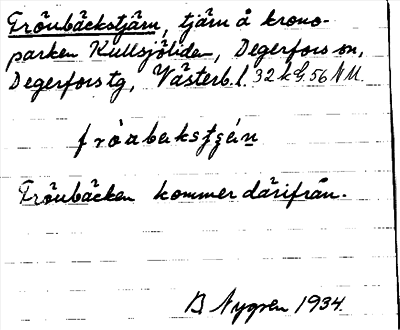 Fröubäckstjärn, tjärn å krono-
parken Kullsjöliden, Degerfors sn,
Degerfors tg, Västerb. l. 32 k G. 56 N M.
fröabekstjɛ́n
Fröubäcken kommer därifrån.
B Nygren 1934.